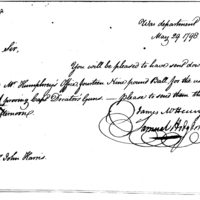 War department
May 29 1798
Sir,
You will be pleased to have send down
Mr Humphrey's Office fourteen Nine pound Ball, for the
of proving Capt Decatur's Guns — please to send them th
afternoon
James McHenry
Samuel Hodgdon
John Harris